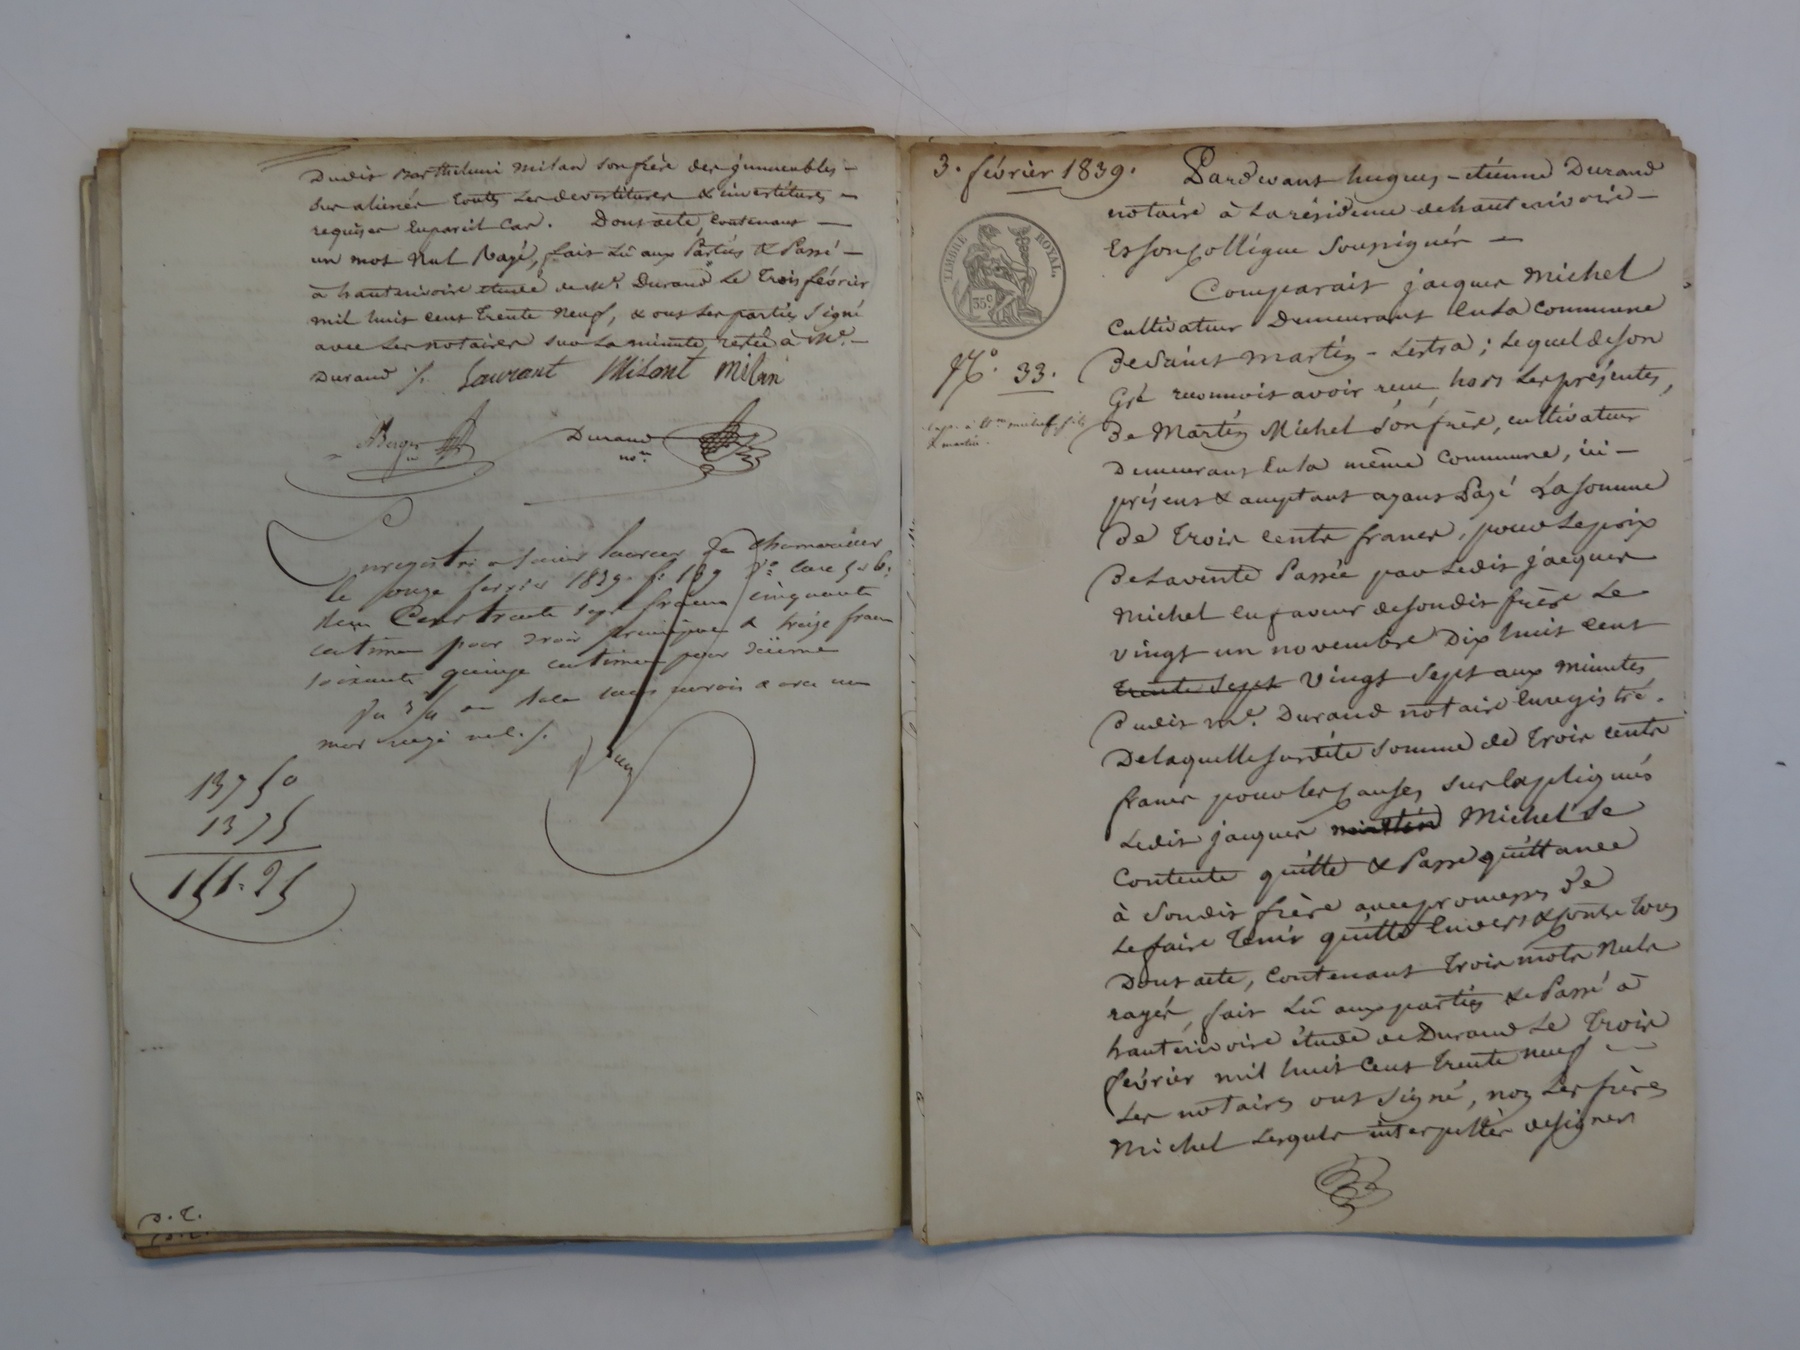 Dudit Barthelemi Milan son frère des immeubles
sus aliénés toutes les devestitures & investitures
requises en pareil cas. Dont acte, contenant
un mot nul Rayé, fait lû aux Parties & Passé
à hauterivoire étude de Me. Durand le trois février
mil huit cent trente neuf, & ont les parties signé
avec les notaires sur la minute restée à Me.
Durand /.
Laurant Milant milan
Berger
Durand
nore
Enregistré à Saint Laurent de Chamousset
le onze fevrier 1839 fo 189 Vo Case 5 & 6,
reçu Cent trente sept francs cinquante
centimes pour droit principal & treize francs
soixante quinze centimes pour dixieme
mot rayé nul ./.
137 50
13 75
151.25
D.t.
3. février 1839.
TIMBRE ROYAL.
35c
No. 33.
Pardevant hugues-etienne Durand
notaire à la résidence de hauterivoire
et son Collègue soussignés
Comparait jacques Michel
Cultivateur Demeurant en la Commune
De Saint Martin-Lestra; lequel de son
Gré reconnoit avoir reçu, hors les présentes,
De Martin Michel son frère, cultivateur
Demeurant en la même Commune, ici
présent & acceptant ayant Payé la somme
De trois cents francs, pour le prix
De la vente Passée par ledit jacques
Michel en faveur de son dit frère le
vingt un novembre Dix huit cent
trente sept vingt sept aux minutes
Dudit Me. Durand notaire Enregistré.
De laquelle susdite somme de trois cents
francs pour les causes sus expliqués
Ledit jacques martin Michel se
Contente quitte & Passe quittance
à son dit frère avec promesse de
le faire tenir quitte envers & contre tous
Dont acte, contenant trois mots Nuls
rayés, fait lû aux parties & Passé à
hauterivoire étude de Durand le trois
février mil huit Cent trente neuf
Les notaires ont signé, non les frères
Michel lesquels interpellés de signer